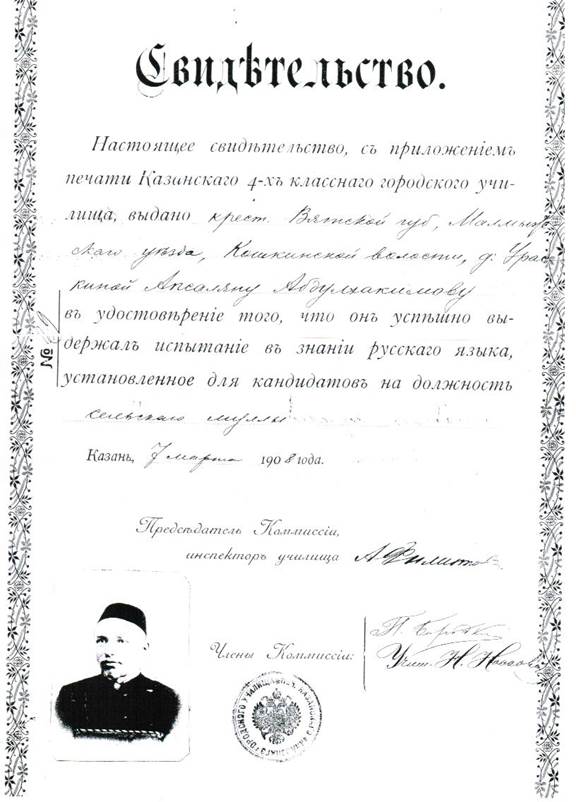 Свидѣтельство.
Настоящее свидѣтельство, съ приложеніемъ
печати Казанскаго 4-хъ класснаго городского учи-
лища, выдано крест. Вятской губ, Малмыж
скаго уѣзда, Кошкинской волости, д. Урас
киной Апсаляму Абдулхакимову
№
въ удостовѣреніе того, что онъ успѣшно вы-
держалъ испытаніе въ знаніи русскаго языка,
установленное для кандидатовъ на должность
сельскаго муллы
Казань, 7 марта 1908 года.
Предсѣдатель Коммиссіи,
инспекторъ училища А. Филиппов
Члены Коммиссіи:
Учит. Н.